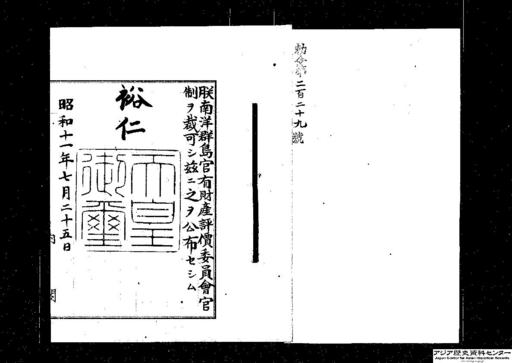 勅令第二百二十九號
朕南洋群島官有財產評價委員會官
制ヲ裁可シ茲ニ之ヲ公布セシム
裕仁
天皇
御璽
昭和十一年七月二十五日
内閣
アジア歴史資料センター
Japan Center for Asian Historical Records